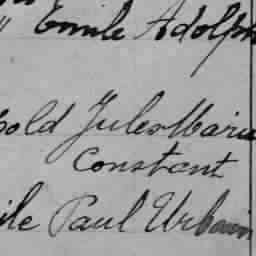 " Emile Adolph
pold Jules Marie
Constant
ile Paul Urbain